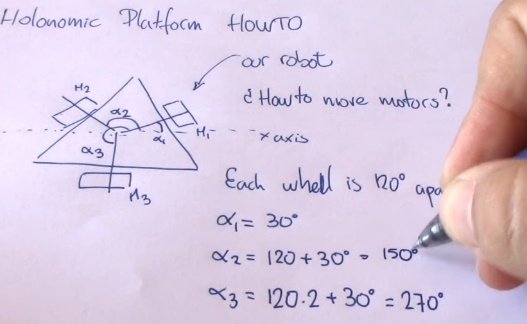 Holonomic Platform HOWTO
our robot
¿ How to move motors?
M2
α2
M1
α1
x axis
α3
M3
Each whell is 120° apa
α1 = 30°
α2 = 120 + 30° = 150°
α3 = 120.2 + 30° = 270°